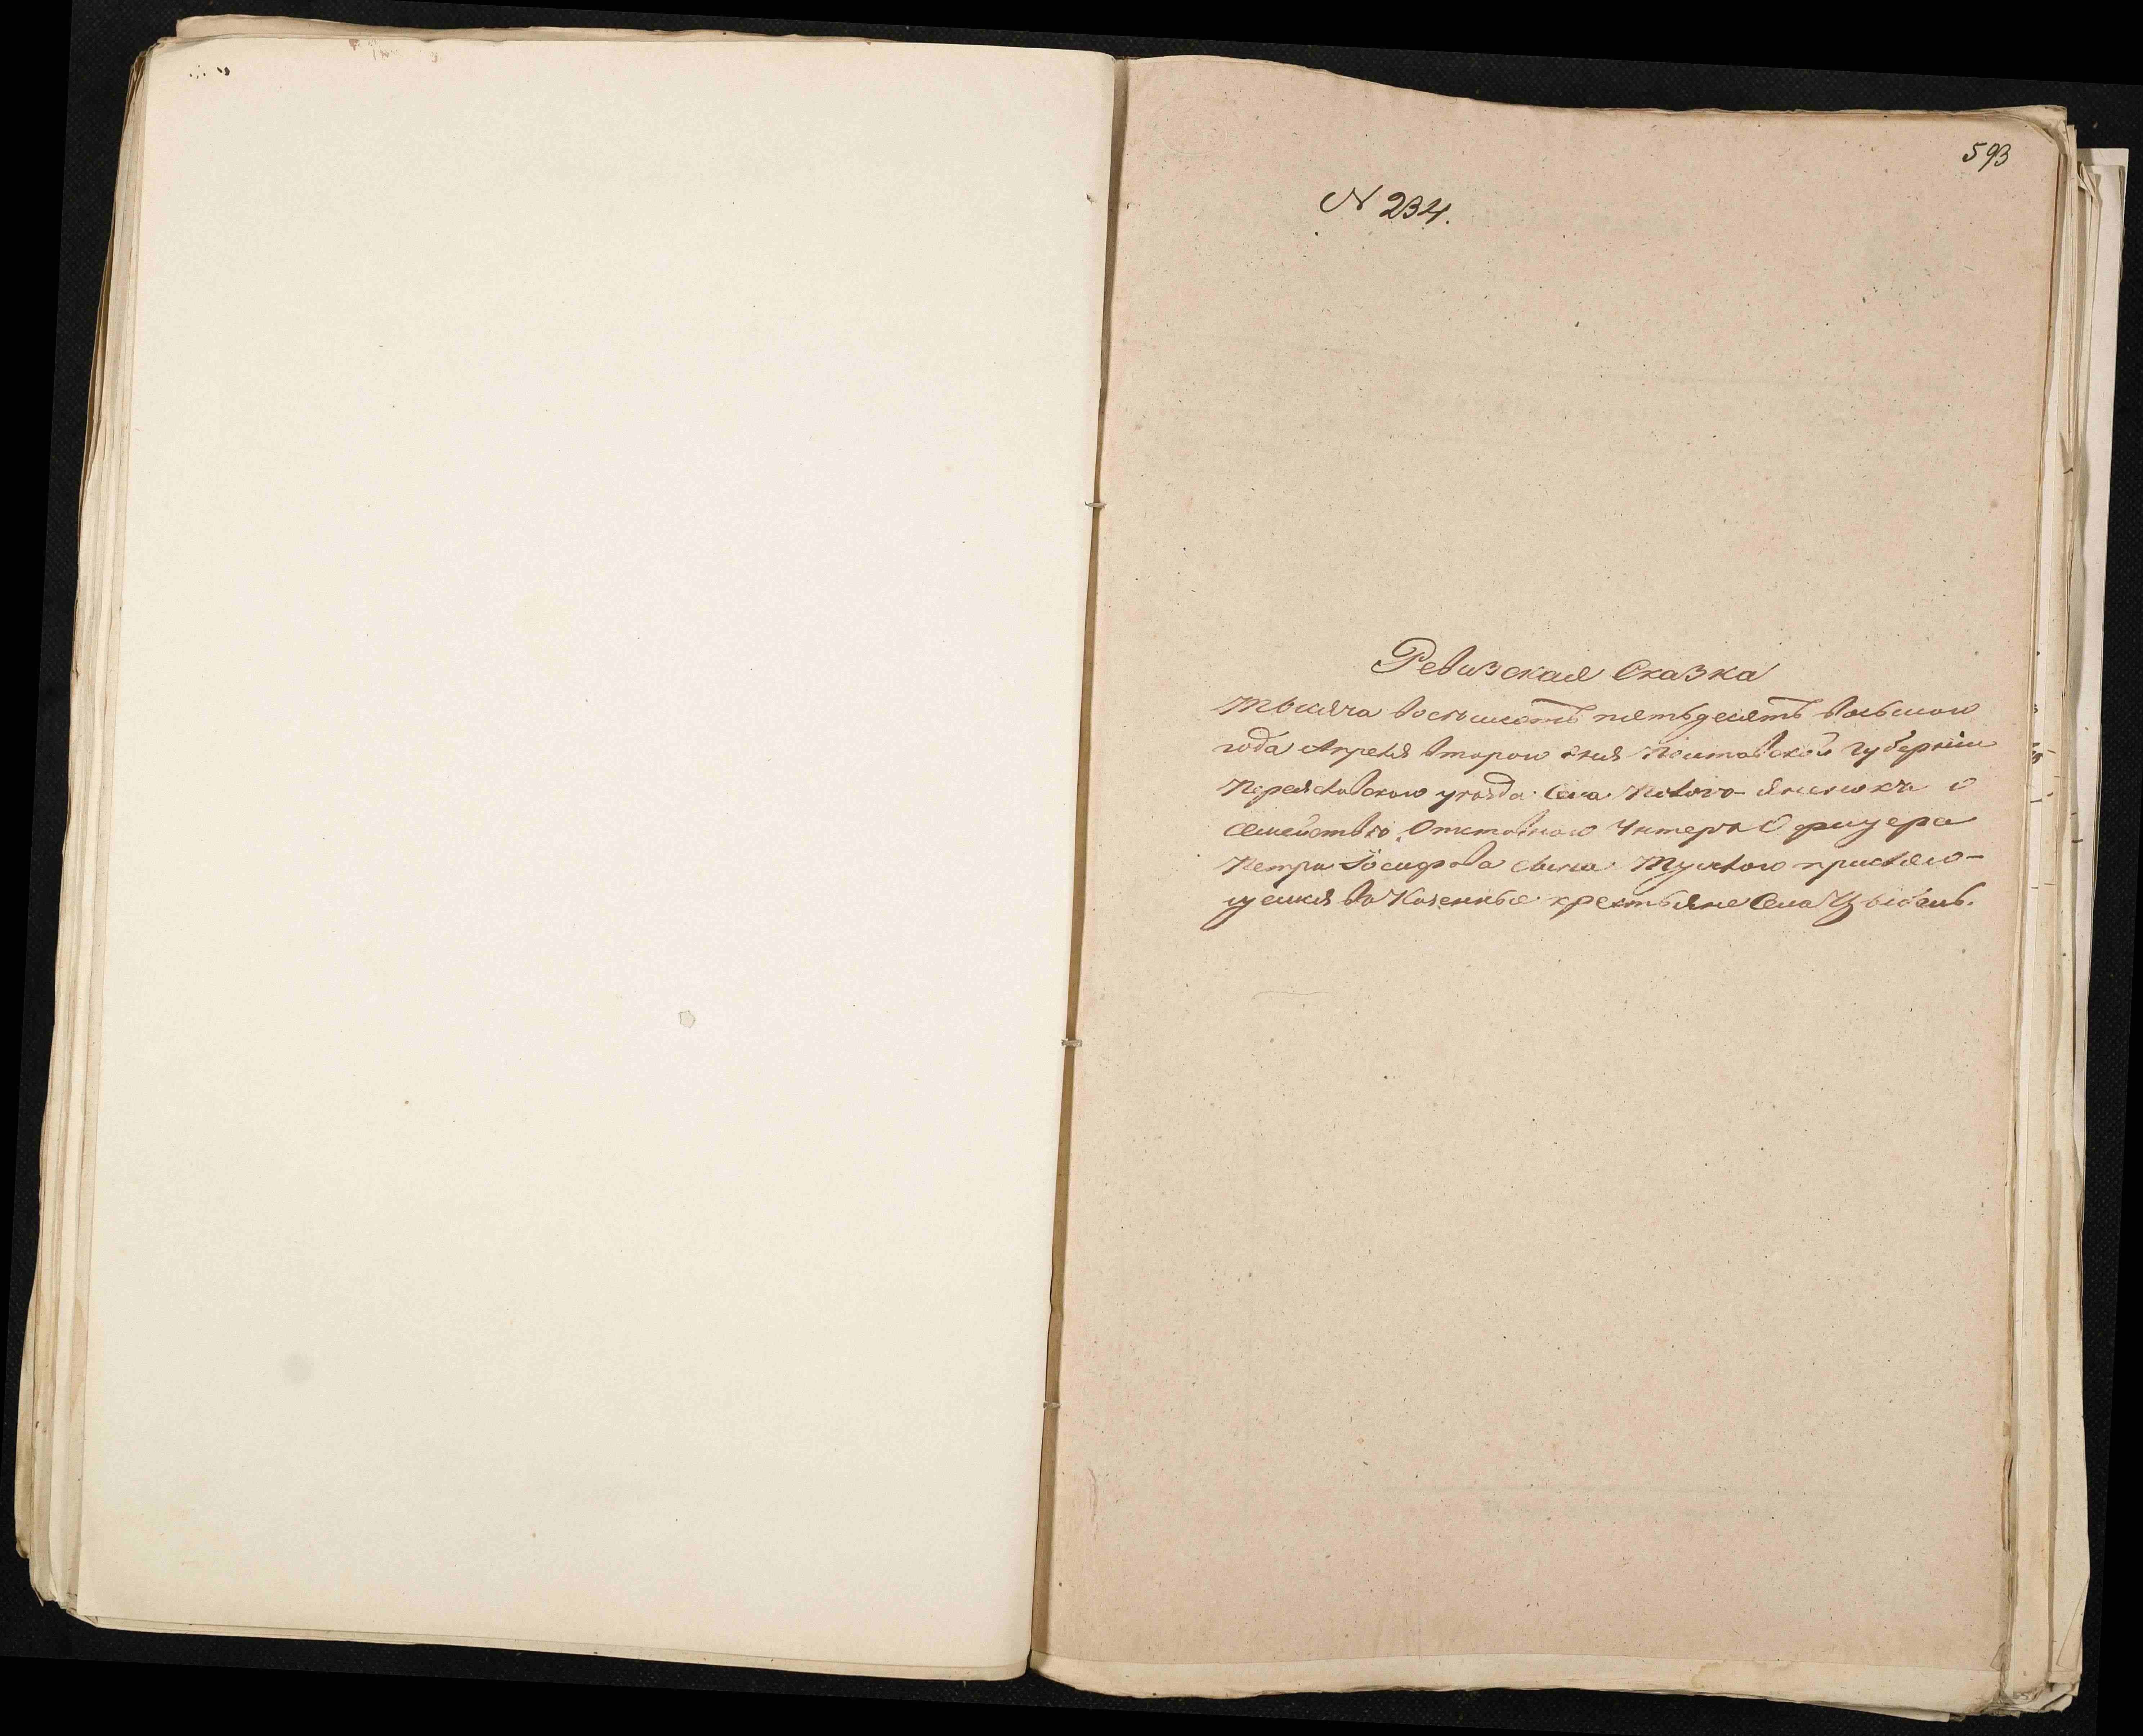 593
N 234.
Ревизская Сказка
Тысяча восемьсотъ пятьдесятъ восьмого
года Апреля второго дня Полтавской Губерніи
Переяславского уезда Села о
семействе Отставного Унтеръ Офицера
Петра Іосифова сына присляю-
щемся въ Казенные крестьяне Села Цыбель.